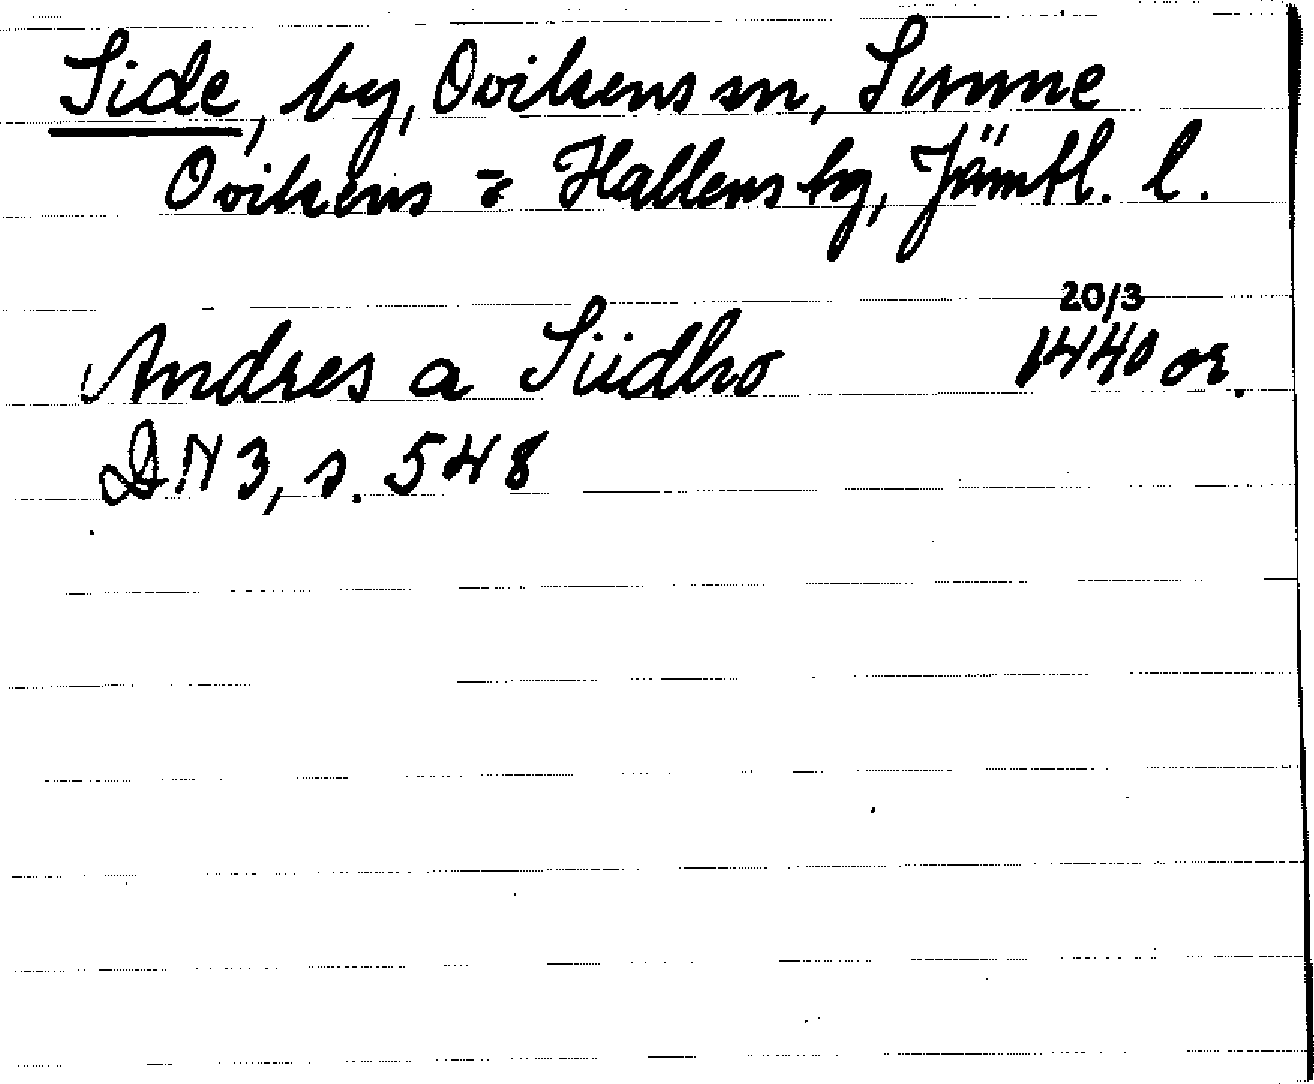 Side, by, Ovikens sn, Sunne
Ovikens o Hallens tg, Jämtl. l.
20/3
Andres a Siidho 1440 or.
DN 3, s. 548